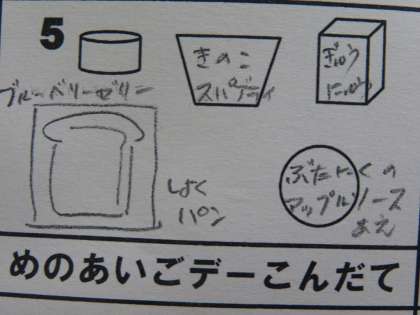 5
きのこ
スパゲティ
ぎゅう
にゅう
ブルーベリーゼリー
しょく
パン
ぶたにくの
アップルソース
あえ
めのあいごデーこんだて